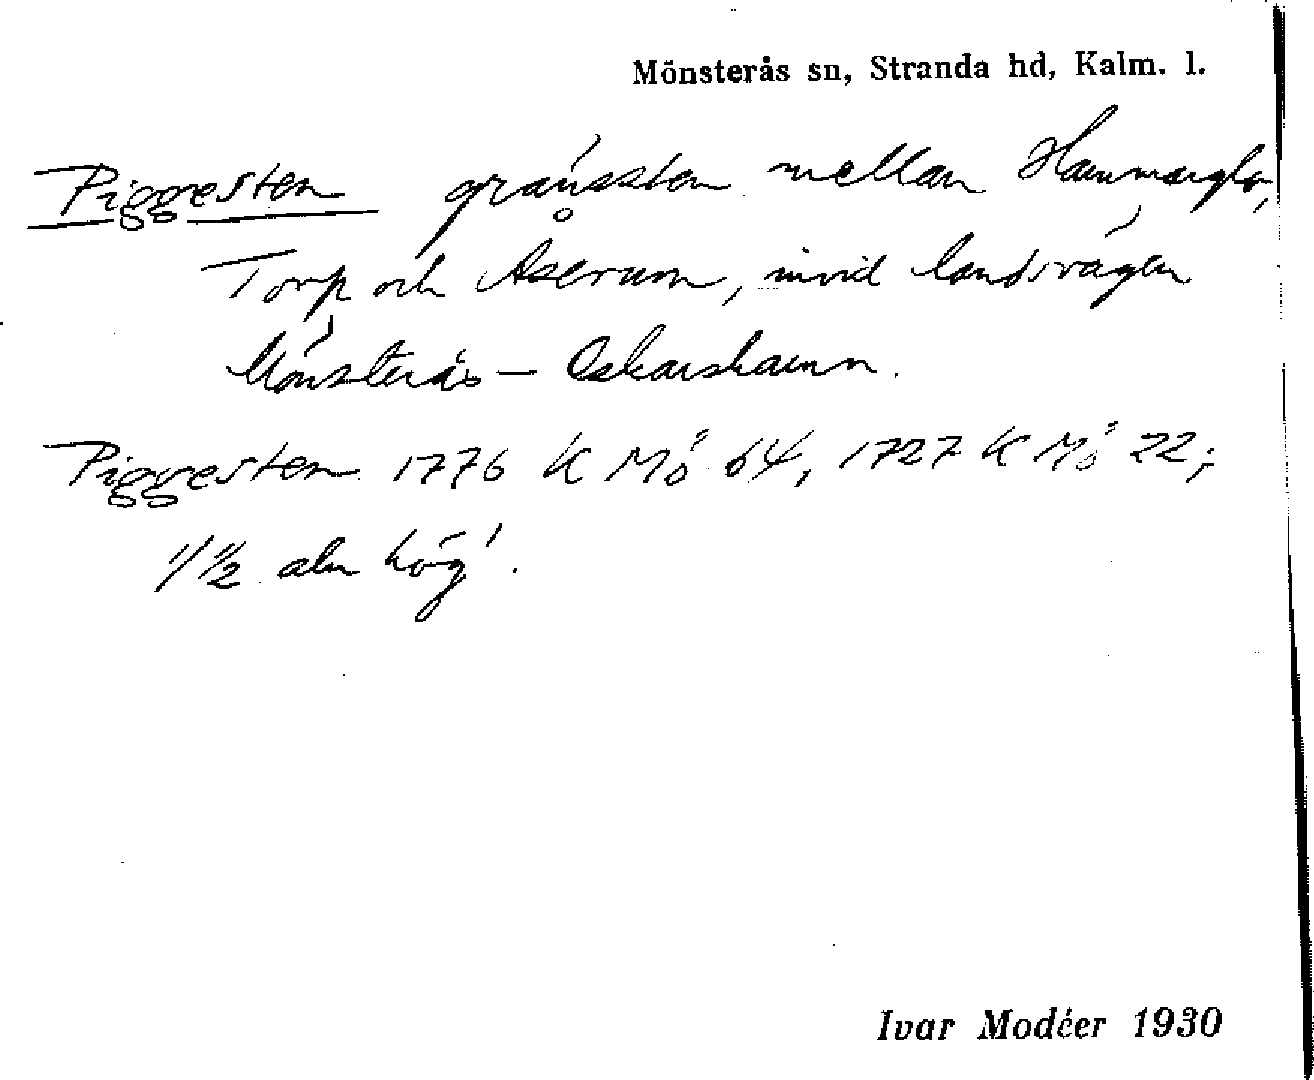 Mönsterås sn, Stranda hd, Kalm. l.
Piggesten gränssten mellan Hammarglo,
Torp och Åserum, invid landsvägen
Mönsterås – Oskarshamn.
Piggesten 1776 K Mö 64, 1727 K Mö 22;
1 1/2 aln hög.
Ivar Modéer 1930